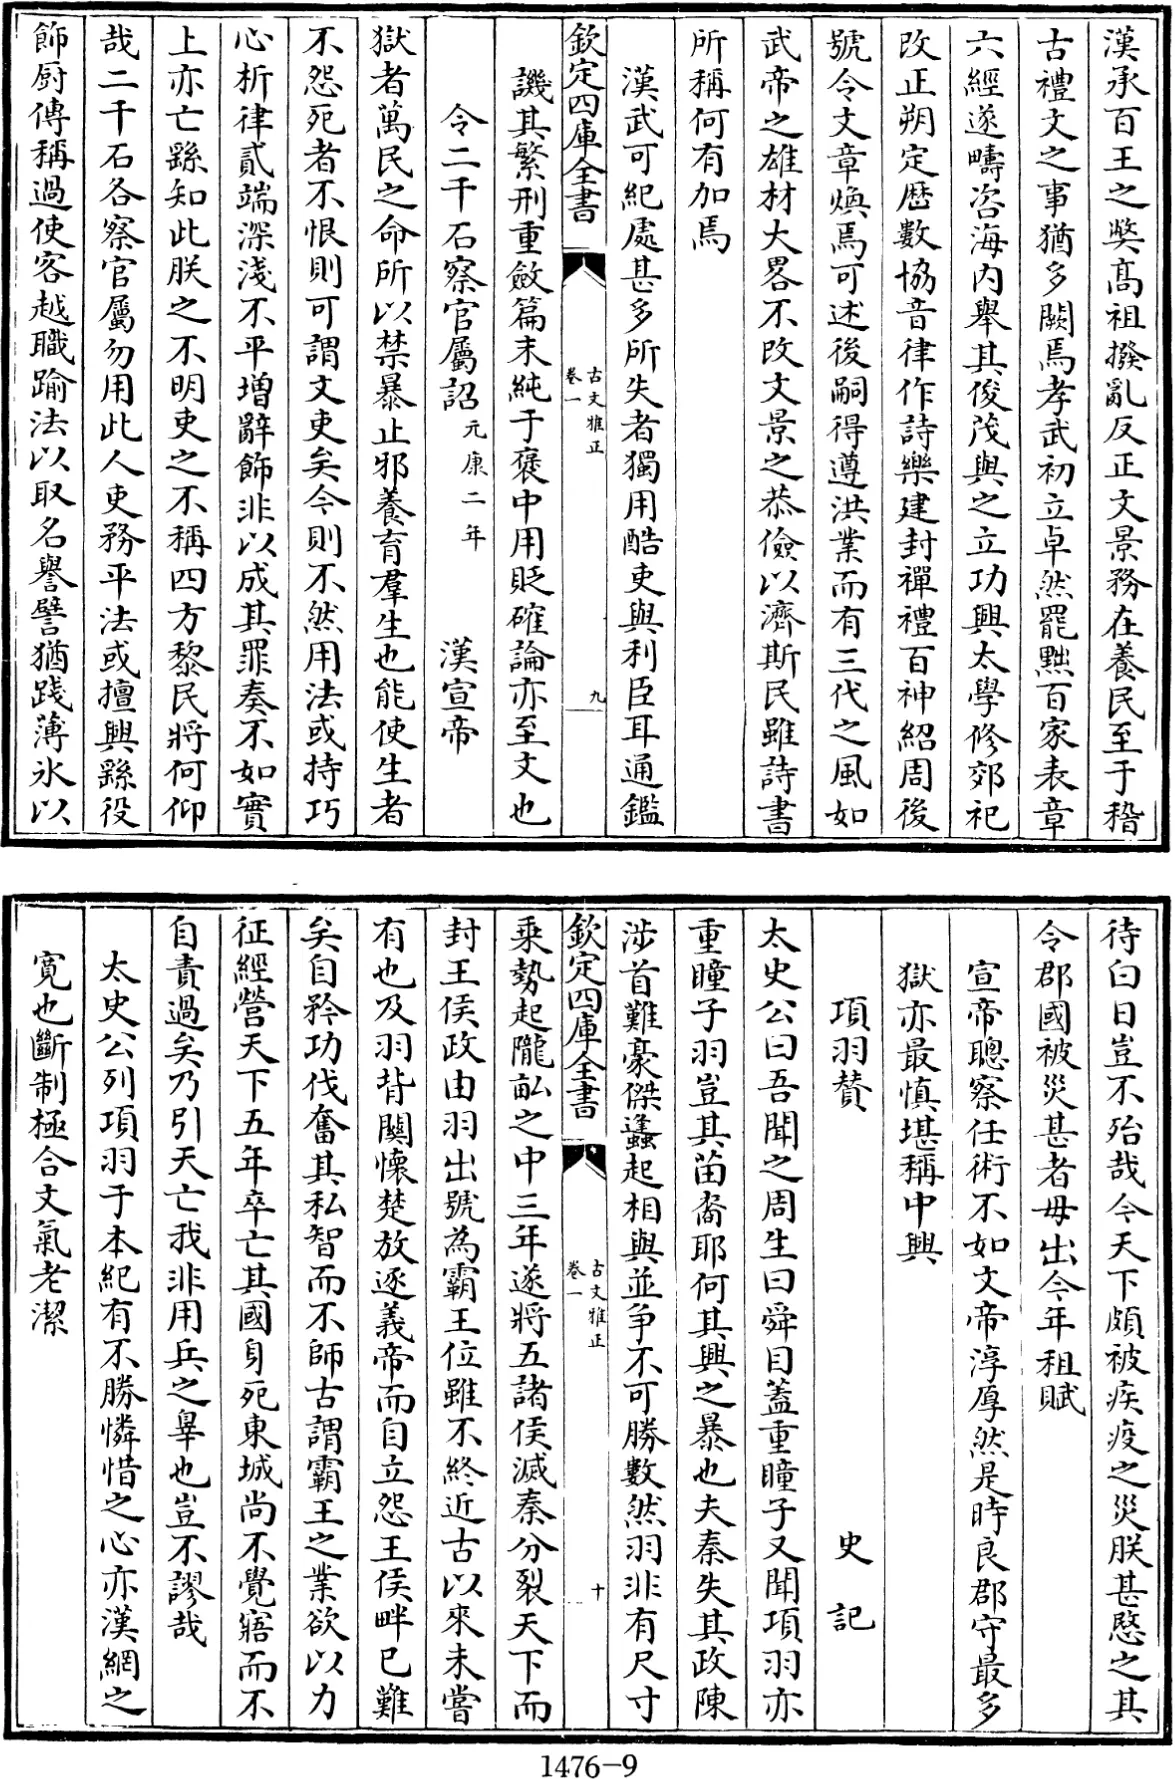 漢承百王之獘髙祖撥亂反正文景務在養民至于稽
古禮文之事猶多闕焉孝武初立卓然罷黜百家表章
六經遂疇咨海内舉其俊茂與之立功興太學修郊祀
改正朔定厯數協音律作詩樂建封禪禮百神紹周後
號令文章煥焉可述後嗣得遵洪業而有三代之風如
武帝之雄材大畧不改文景之恭儉以濟斯民雖詩書
所稱何有加焉
漢武可紀處甚多所失者獨用酷吏與利臣耳通鑑
欽定四庫全書
古文雅正
卷一
九
譏其繁刑重斂篇末純于褒中用貶確論亦至文也
令二千石察官屬詔元康二年 漢宣帝
獄者萬民之命所以禁暴止邪養育羣生也能使生者
不怨死者不恨則可謂文吏矣今則不然用法或持巧
心析律貳端深淺不平增辭飾非以成其罪奏不如實
上亦亡繇知此朕之不明吏之不稱四方黎民將何仰
哉二千石各察官屬勿用此人吏務平法或擅興繇役
飾厨傳稱過使客越職踰法以取名譽譬猶踐薄氷以
待白日豈不殆哉今天下頗被疾疫之災朕甚愍之其
令郡國被災甚者毋出今年租賦
宣帝聰察任術不如文帝淳厚然是時良郡守最多
獄亦最慎堪稱中興
項羽贊 史記
太史公曰吾聞之周生曰舜目蓋重瞳子又聞項羽亦
重瞳子羽豈其苗裔耶何其興之暴也夫秦失其政陳
涉首難豪傑蠭起相與並争不可勝數然羽非有尺寸
欽定四庫全書
古文雅正
卷一
十
乗勢起隴畆之中三年遂將五諸侯滅秦分裂天下而
封王侯政由羽出號為霸王位雖不終近古以來未嘗
有也及羽背關懷楚放逐義帝而自立怨王侯畔已難
矣自矜功伐奮其私智而不師古謂霸王之業欲以力
征經營天下五年卒亡其國身死東城尚不覺寤而不
自責過矣乃引天亡我非用兵之辠也豈不謬哉
太史公列項羽于本紀有不勝憐惜之心亦漢網之
寛也斷制極合文氣老潔
1476-9